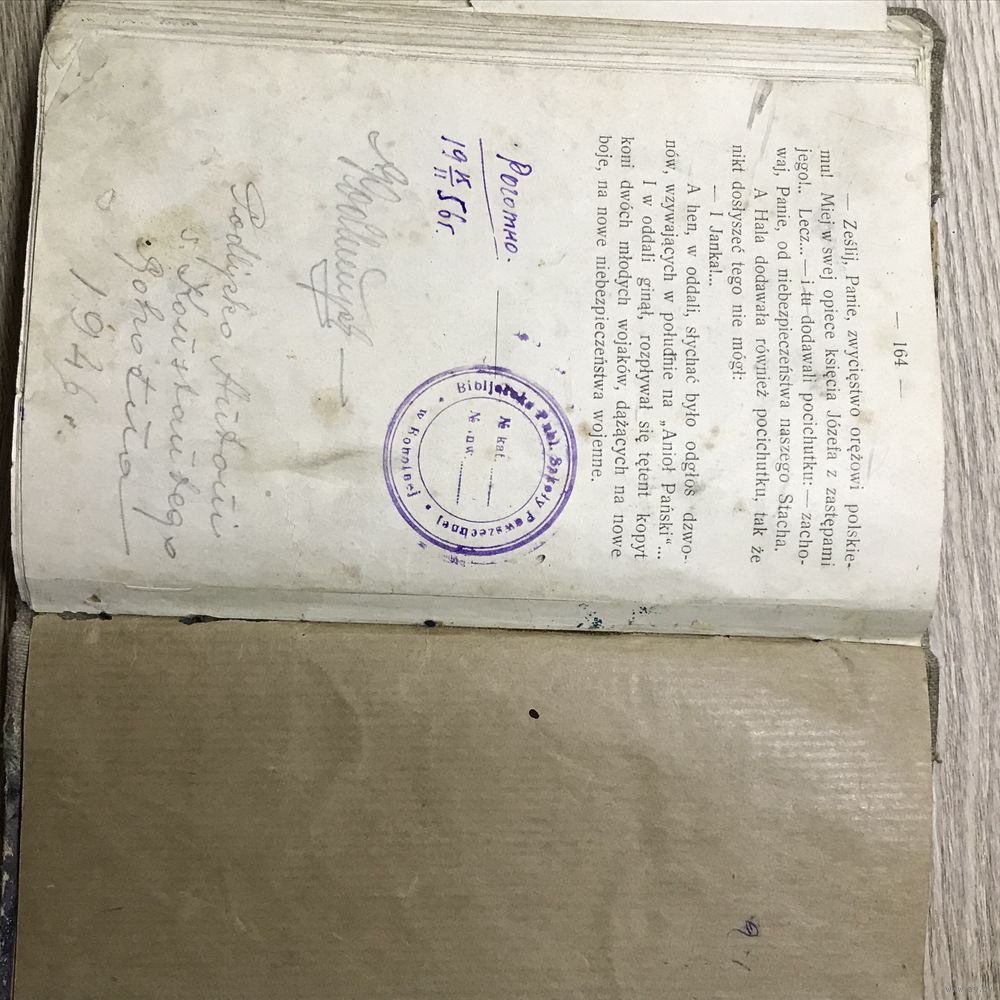 — 164 —
— Ześlij, Panie, zwycięstwo orężowi polskie-
mu! Miej w swej opiece księcia Józefa z zastępami
jego!.. Lecz... — i tu dodawali pocichutku: — zacho-
waj, Panie, od niebezpieczeństwa naszego Stacha.
A Hala dodawała również pocichutku, tak że
nikt dosłyszeć tego nie mógł:
— I Janka!...
A hen, w oddali, słychać było odgłos dzwo-
nów, wzywających w południe na „Anioł Pański“...
I w oddali ginął, rozpływał się tętent kopyt
koni dwóch młodych wojaków, dążących na nowe
boje, na nowe niebezpieczeństwa wojenne.
Biblioteka Publ. Szkoły Powszechnej
w
№ kat.
№ inw.
Роготно.
19 IX/II 56г.
1946 r.